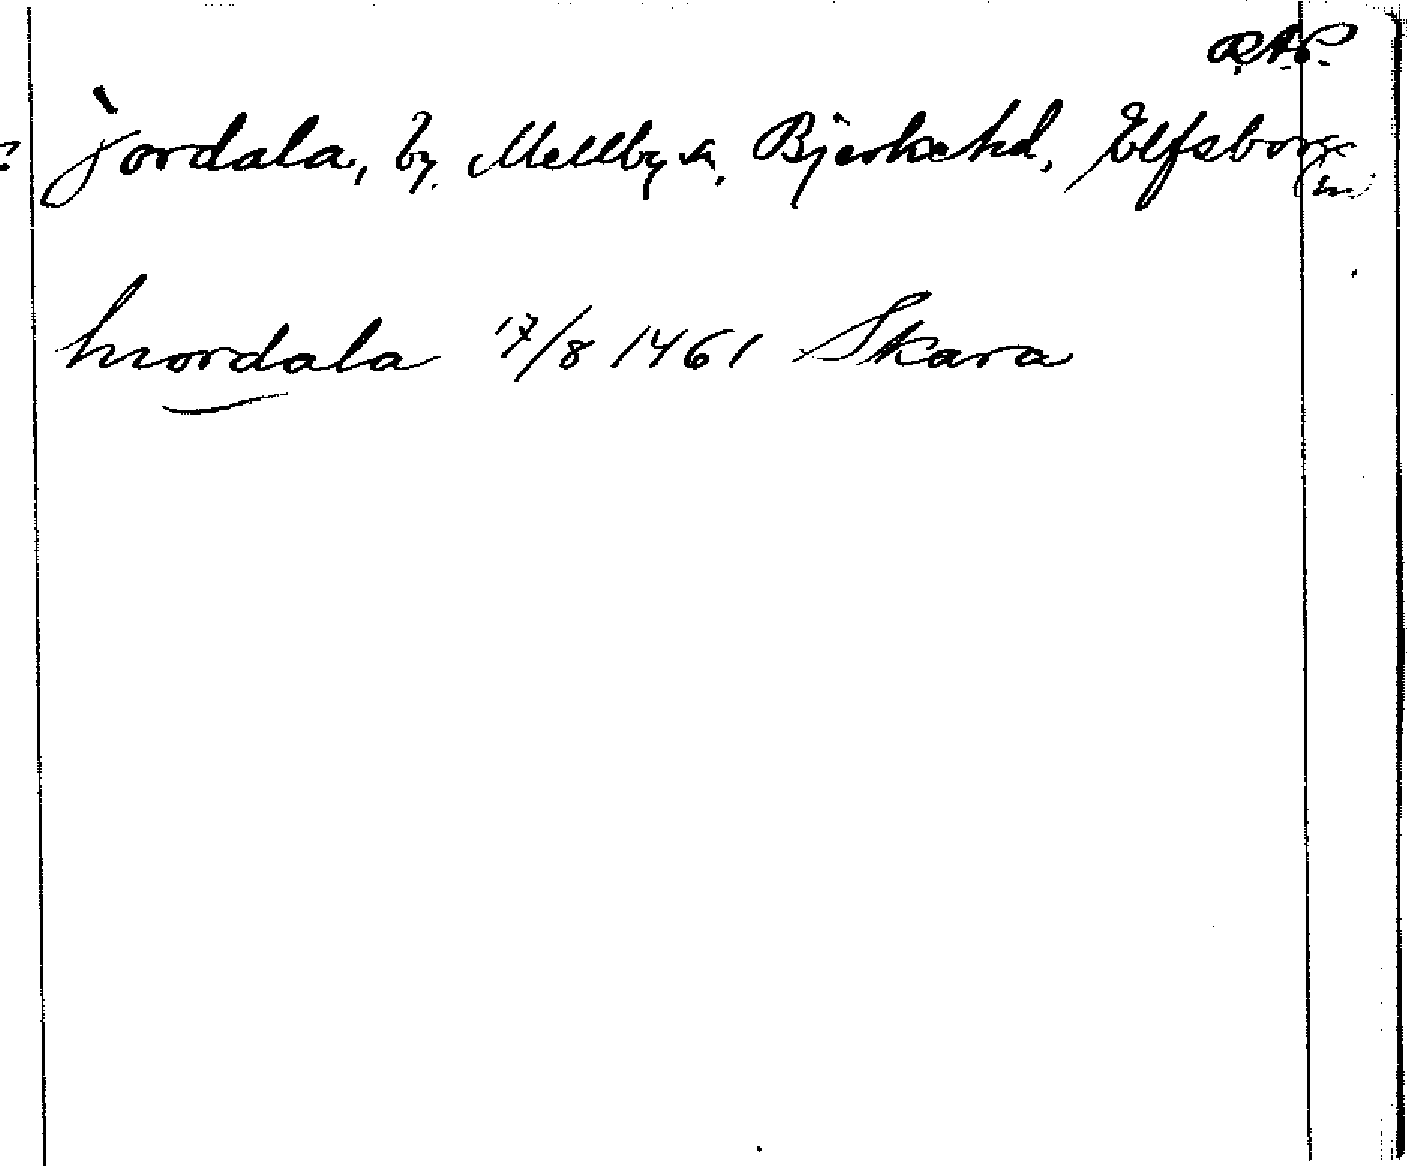 R.A.P.
Jordala, by. Mellby sn, Bjerke hd, Elfsborgs
län
hiordala 17/8 1461 Skara